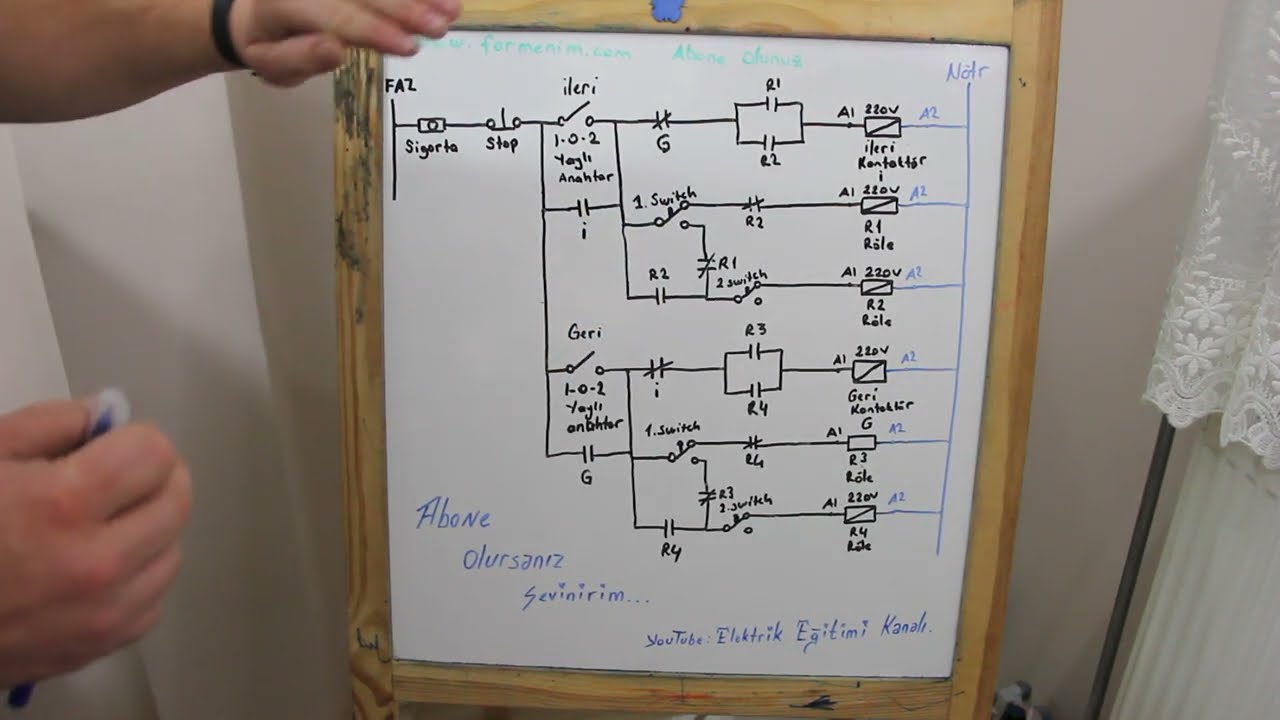 www.formenim.com Abone Olunuz
FAZ
Nötr
Sigorta
Stop
ileri
1-0-2
Yaylı
Anahtar
i
G
R1
R2
A1 220V A2
ileri
Kontaktör
i
1. Switch
R2
A1 220V A2
R1
Röle
R1
R2
2 switch
A1 220V A2
R2
Röle
Geri
1-0-2
Yaylı
anahtar
G
i
R3
R4
A1 220V A2
Geri
Kontaktör
G
1. switch
R4
A1 A2
R3
Röle
R3
R4
2. switch
A1 220V A2
R4
Röle
Abone
Olursanız
Sevinirim...
YouTube: Elektrik Eğitimi Kanalı.